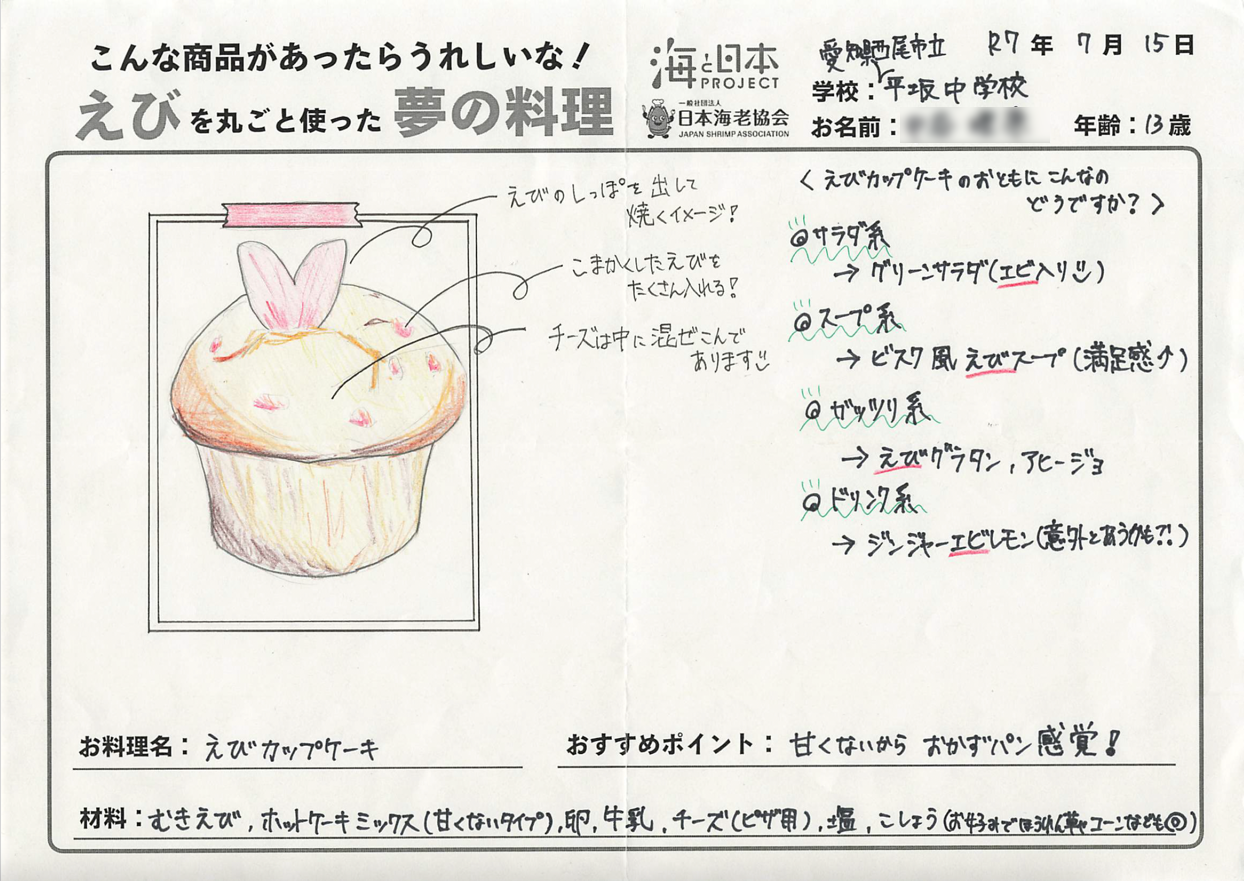 こんな商品があったらうれしいな!
えびを丸ごと使った夢の料理
海と日本
PROJECT
一般社団法人
日本海老協会
JAPAN SHRIMP ASSOCIATION
愛知県西尾市立 R7年 7月 15日
学校:平坂中学校
お名前: 年齢:13歳
えびのしっぽを出して
焼くイメージ!
こまかくしたえびを
たくさん入れる!
チーズは中に混ぜこんで
あります
〈えびカップケーキのおともにこんなの
どうですか?〉
◎サラダ系
→グリーンサラダ(エビ入り)
◎スープ系
→ビスク風えびスープ(満足感↑)
◎ガッツリ系
→えびグラタン,アヒージョ
◎ドリンク系
→ジンジャーエビレモン(意外とあうかも?!)
お料理名:えびカップケーキ
おすすめポイント:甘くないから おかずパン感覚!
材料:むきえび,ホットケーキミックス(甘くないタイプ),卵,牛乳,チーズ(ピザ用),塩,こしょう(お好みでほうれん草やコーンなども◎)